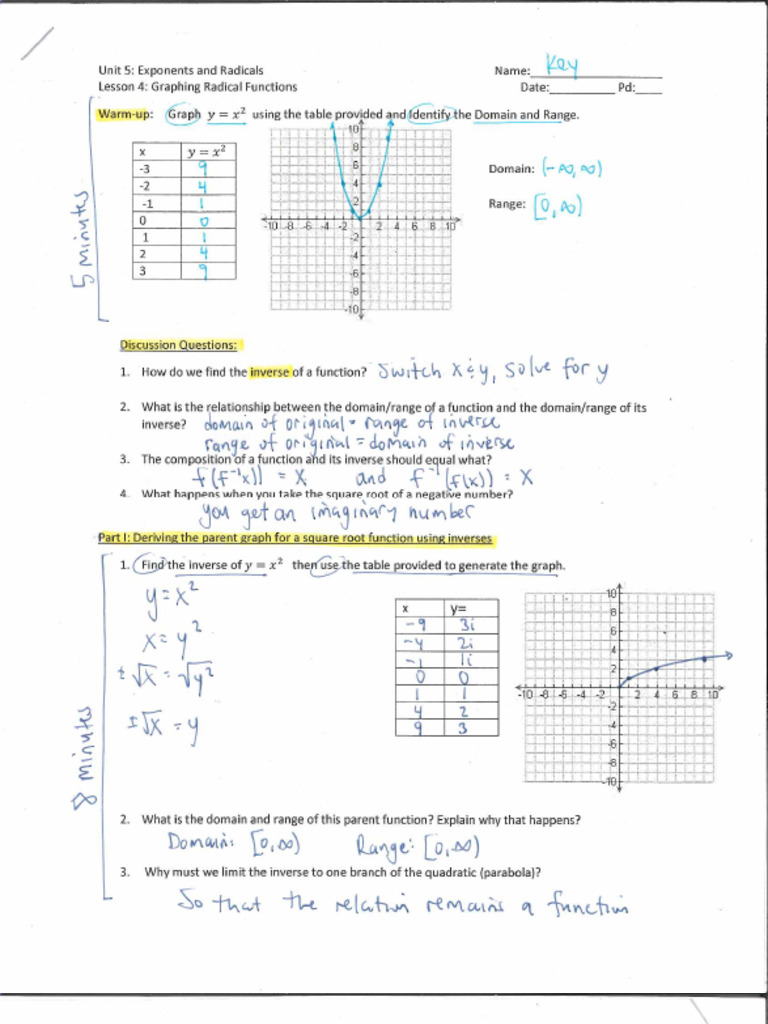 Unit 5: Exponents and Radicals
Name: Key
Lesson 4: Graphing Radical Functions
Date: Pd:
Warm-up: Graph y = x² using the table provided and Identify the Domain and Range.
x y = x²
-3 9
-2 4
-1 1
0 0
1 1
2 4
3 9
10
8
6
4
2
-10 -8 -6 -4 -2 2 4 6 8 10
-2
-4
-6
-8
-10
Domain: (-∞, ∞)
Range: [0, ∞)
5 minutes
Discussion Questions:
1. How do we find the inverse of a function? Switch x & y, solve for y
2. What is the relationship between the domain/range of a function and the domain/range of its
inverse? domain of original = range of inverse
range of original = domain of inverse
3. The composition of a function and its inverse should equal what?
f(f⁻¹x)) = x and f⁻¹(f(x)) = x
4. What happens when you take the square root of a negative number?
you get an imaginary number
Part I: Deriving the parent graph for a square root function using inverses
1. Find the inverse of y = x² then use the table provided to generate the graph.
y = x²
x = y²
±√x = √y²
±√x = y
x y=
-9 3i
-4 2i
-1 1i
0 0
1 1
4 2
9 3
10
8
6
4
2
-10 -8 -6 -4 -2 2 4 6 8 10
-2
-4
-6
-8
-10
8 minutes
2. What is the domain and range of this parent function? Explain why that happens?
Domain: [0, ∞) Range: [0, ∞)
3. Why must we limit the inverse to one branch of the quadratic (parabola)?
So that the relation remains a function